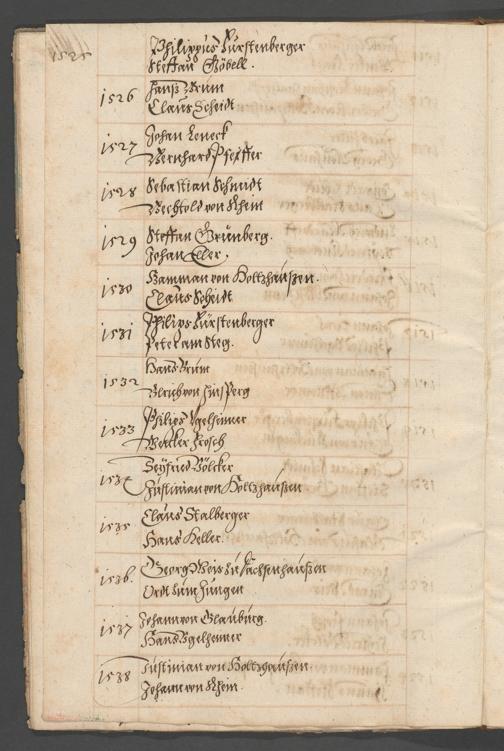 1525 Philippus Fürstenberger
Steffan Göbell.
1526 Hanß Brum
Claus Scheidt
1527 Johan Leneck
Bernhard Pfeffer
1528 Sebastian Schmidt
Bechtold von Rhein
1529 Steffan Grünberg.
Johan Eller.
1530 Hamman von Holtzhaußen.
Claus Scheidt
1531 Philips Fürstenberger
Peter am Steg.
1532 Hans Brum
Ulrich von Hinsperg
1533 Philips Ugelheimer
Wercker Frosch
1534 Seyfried Völcker
Justinian von Holtzhaußen
1535 Claus Stalberger
Hans Keller.
1536. Georg Weis zu Sachsenhaußen
Ordt zum Jungen
1537 Johann von Glauburg.
Hans Ugelheimer
1538 Justinian von Holtzhaußen.
Johann von Rhein.